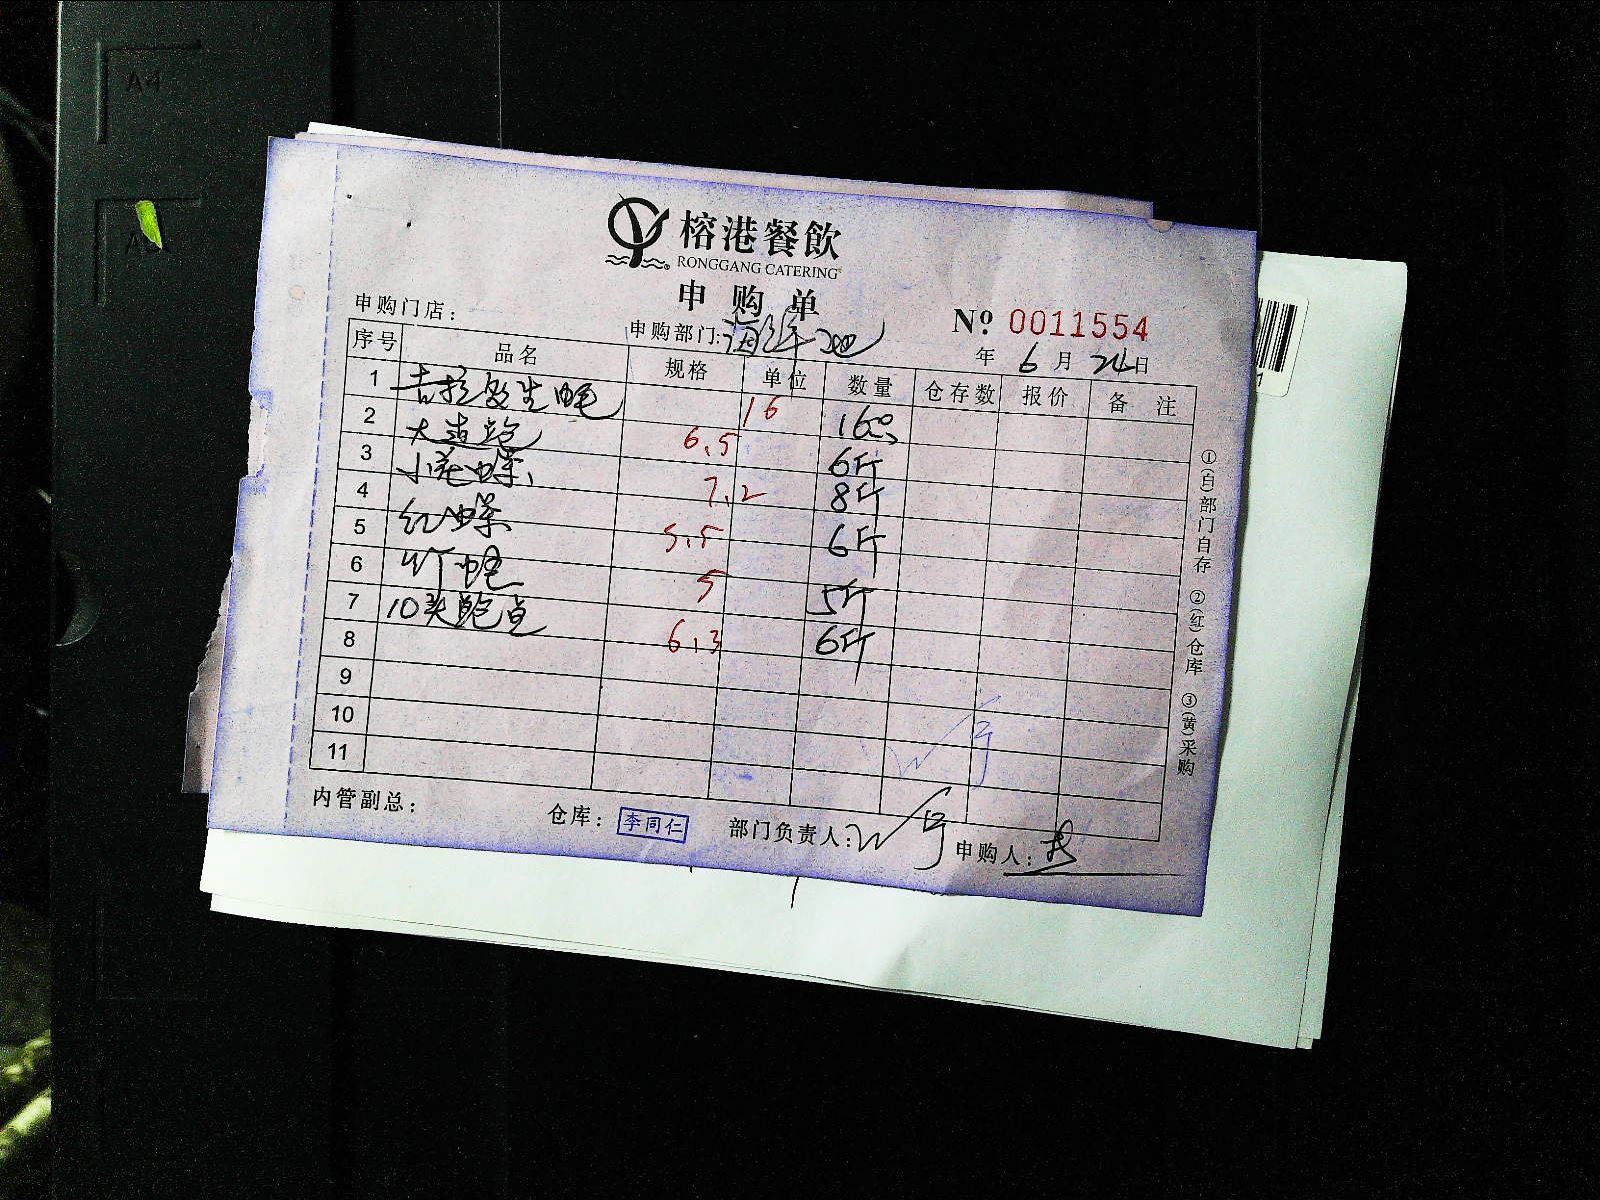 A4
榕港餐飲
RONGGANG CATERING
申购单
申购门店：
申购部门：海鲜池
№ 0011554
年 6 月 24 日
序号 品名 规格 单位 数量 仓存数 报价 备注
1 吉拉多生蚝 16 16只
2 6.5 6斤
3 小花螺 7.2 8斤
4 红螺 5.5 6斤
5 5 5斤
6 10头鲍鱼 6.3 6斤
7
8
9
10
11
①(白)部门自存 ②(红)仓库 ③(黄)采购
内管副总：
仓库： 李同仁
部门负责人：
申购人：